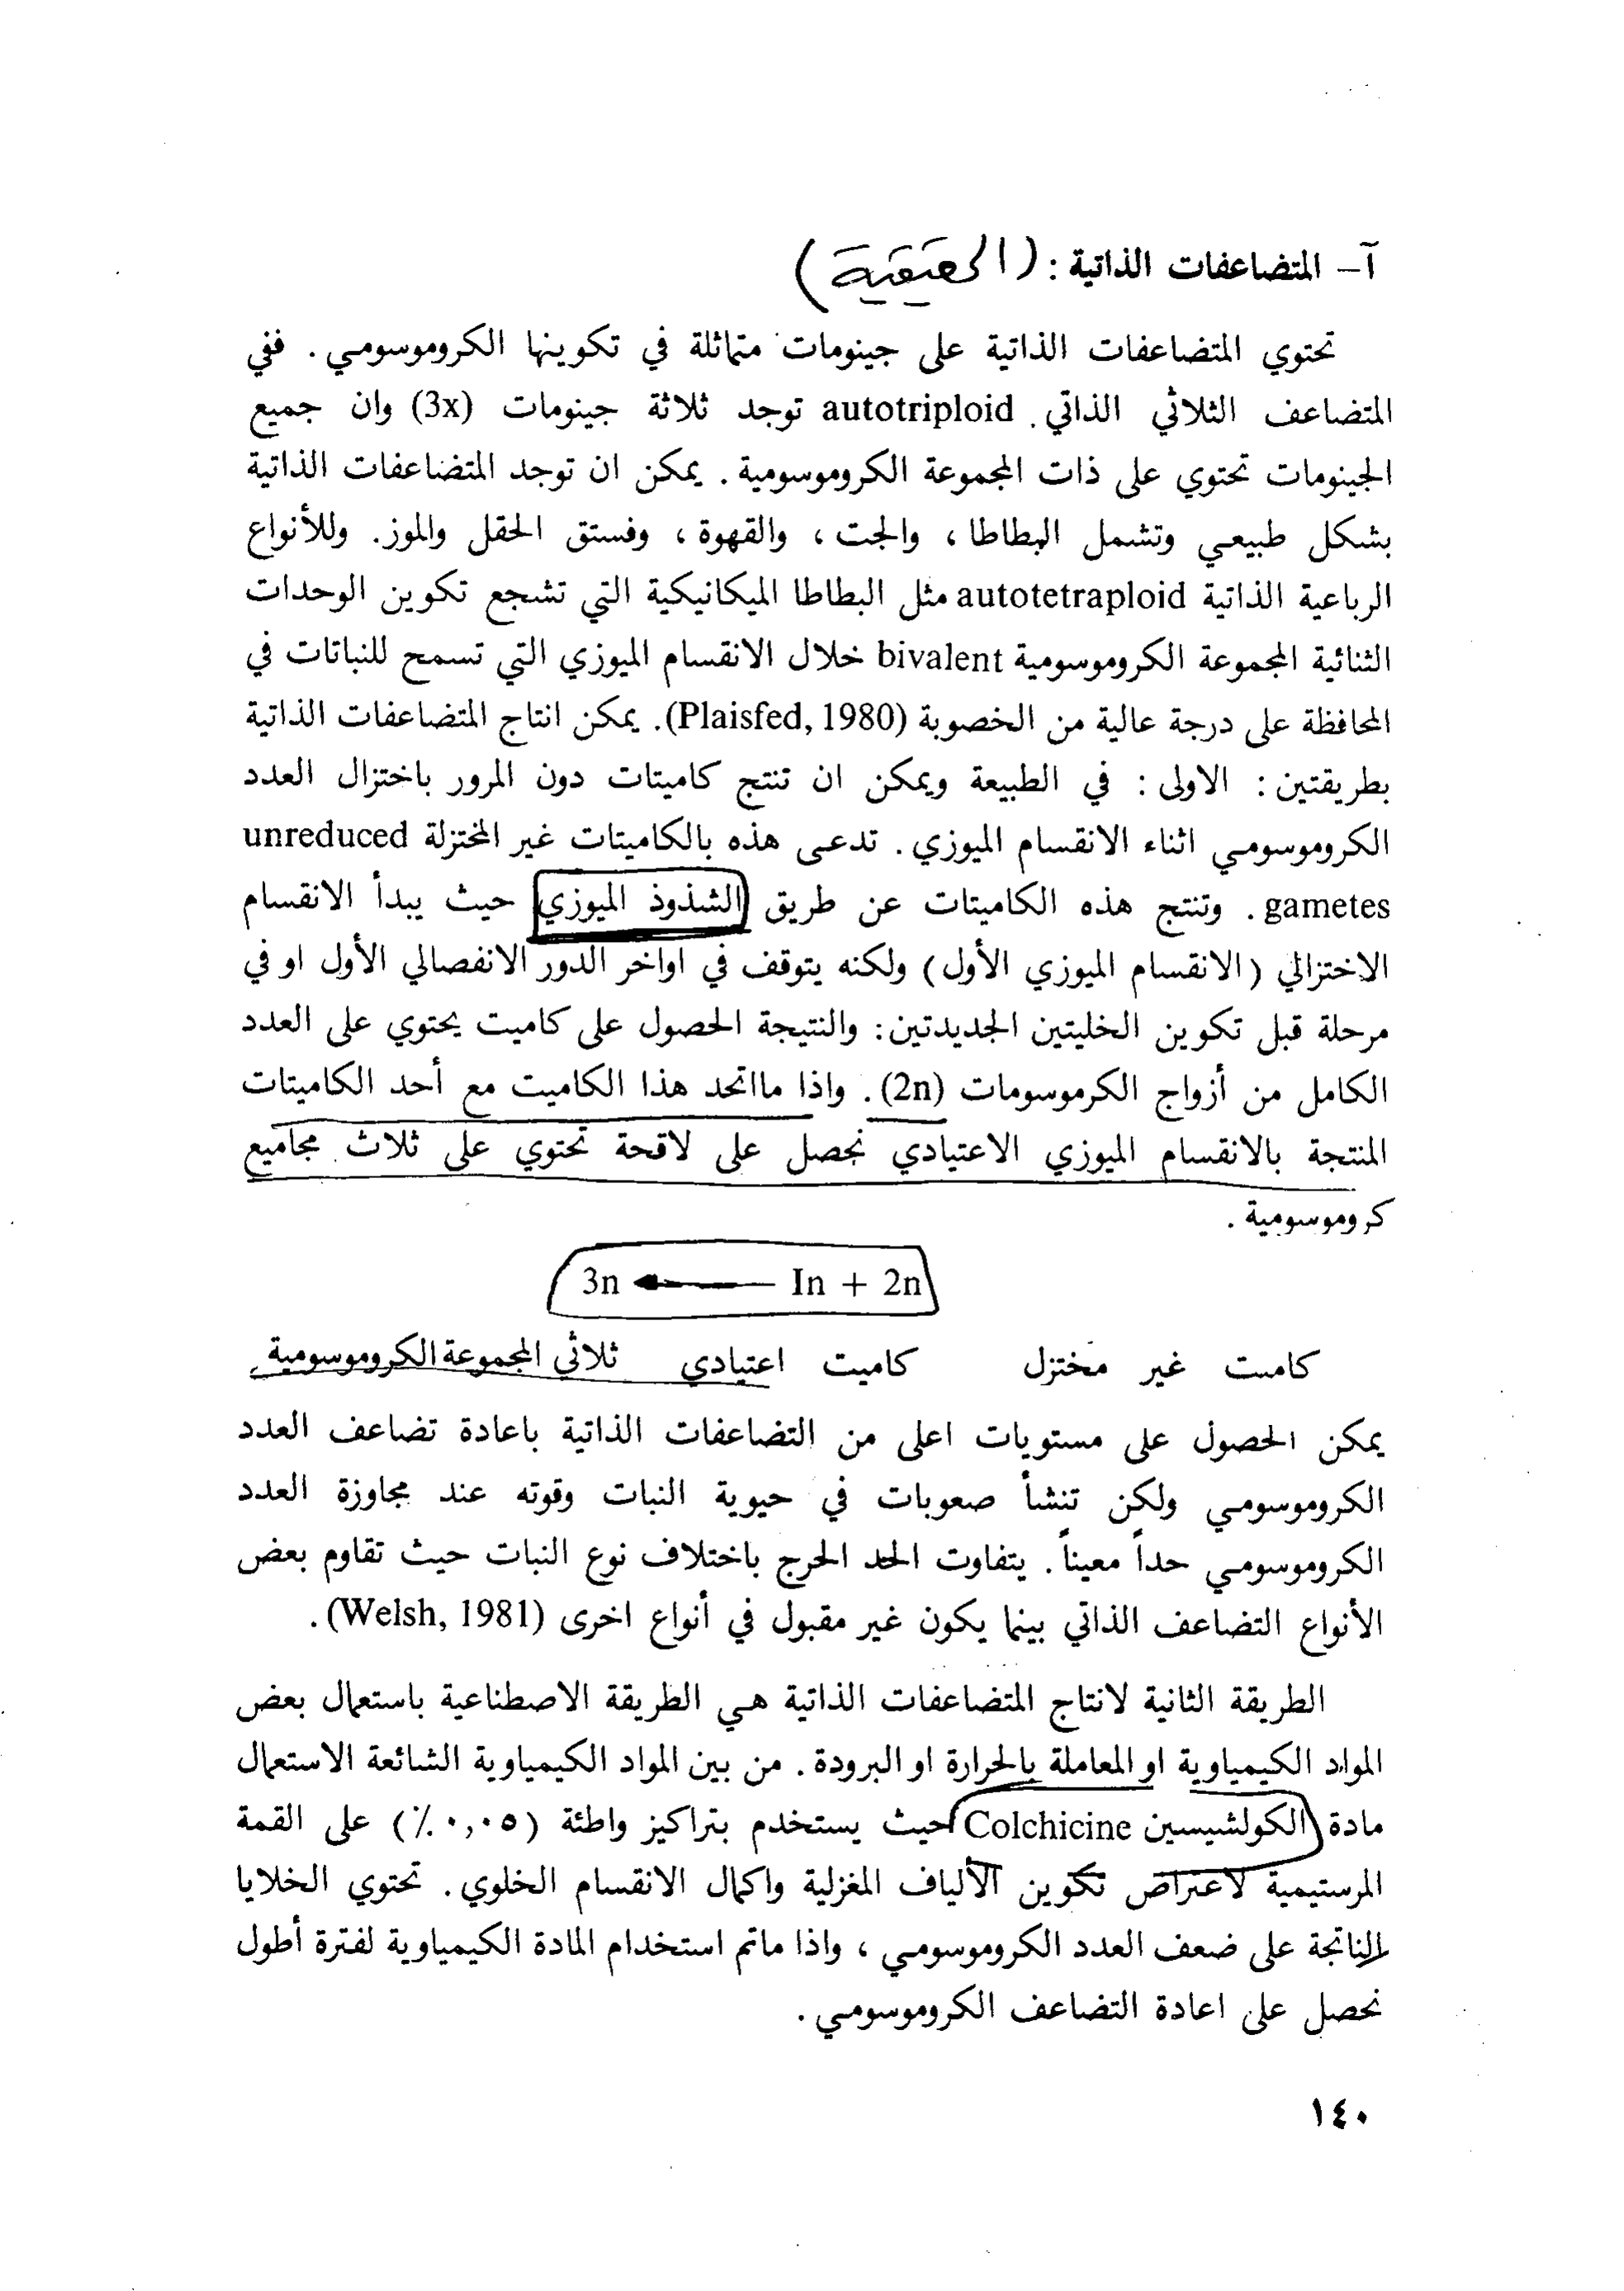 آ- المتضاعفات الذاتية : (الحقيقية)
تحتوي المتضاعفات الذاتية على جينومات متماثلة في تكوينها الكروموسومي . ففي
المتضاعف الثلاثي الذاتي . autotriploid توجد ثلاثة جينومات (3x) وان جميع
الجينومات تحتوي على ذات المجموعة الكروموسومية . يمكن ان توجد المتضاعفات الذاتية
بشكل طبيعي وتشمل البطاطا ، والجت ، والقهوة ، وفستق الحقل والموز. وللأنواع
الرباعية الذاتية autotetraploid مثل البطاطا الميكانيكية التي تشجع تكوين الوحدات
الثنائية المجموعة الكروموسومية bivalent خلال الانقسام الميوزي التي تسمح للنباتات في
المحافظة على درجة عالية من الخصوبة (Plaisfed, 1980). يمكن انتاج المتضاعفات الذاتية
بطريقتين : الاولى : في الطبيعة ويمكن ان تنتج كاميتات دون المرور باختزال العدد
الكروموسومي اثناء الانقسام الميوزي . تدعى هذه بالكاميتات غير المختزلة unreduced
gametes . وتنتج هذه الكاميتات عن طريق الشذوذ الميوزي حيث يبدأ الانقسام
الاختزالي (الانقسام الميوزي الأول) ولكنه يتوقف في اواخر الدور الانفصالي الأول او في
مرحلة قبل تكوين الخليتين الجديدتين : والنتيجة الحصول على كاميت يحتوي على العدد
الكامل من أزواج الكرموسومات (2n) . واذا مااتحد هذا الكاميت مع أحد الكاميتات
المنتجة بالانقسام الميوزي الاعتيادي نحصل على لاقحة تحتوي على ثلاث مجاميع
كروموسومية .
3n ← In + 2n
كامىت غير مختزل كاميت اعتيادي ثلاثي المجموعة الكروموسومية
يمكن الحصول على مستويات اعلى من التضاعفات الذاتية باعادة تضاعف العدد
الكروموسومي ولكن تنشأ صعوبات في حيوية النبات وقوته عند مجاوزة العدد
الكروموسومي حداً معيناً . يتفاوت الحد الحرج باختلاف نوع النبات حيث تقاوم بعض
الأنواع التضاعف الذاتي بينما يكون غير مقبول في أنواع اخرى (Welsh, 1981) .
الطريقة الثانية لانتاج المتضاعفات الذاتية هي الطريقة الاصطناعية باستعمال بعض
المواد الكيمياوية او المعاملة بالحرارة او البرودة . من بين المواد الكيمياوية الشائعة الاستعمال
مادة الكولشيسين Colchicine حيث يستخدم بتراكيز واطئة (٠,٠٥ ٪) على القمة
المرستيمية لاعتراض تكوين الألياف المغزلية واكمال الانقسام الخلوي . تحتوي الخلايا
الناتجة على ضعف العدد الكروموسومي ، واذا ماتم استخدام المادة الكيمياوية لفترة أطول
نحصل على اعادة التضاعف الكروموسومي .
١٤٠